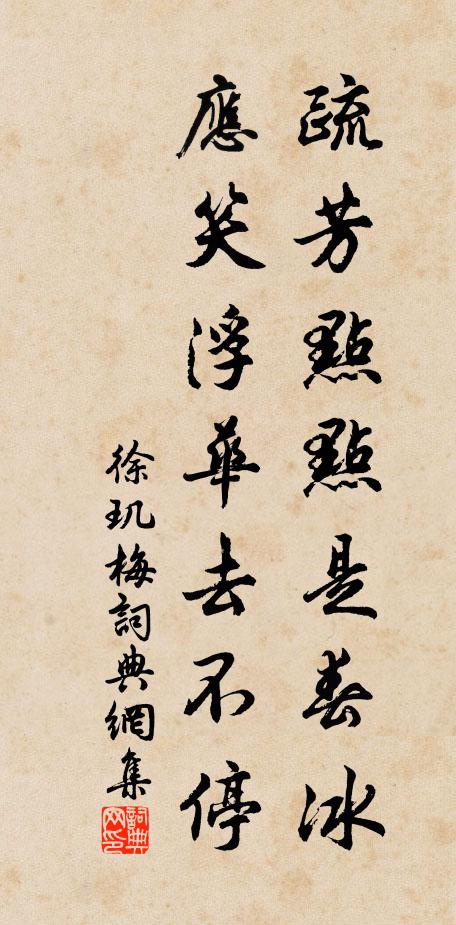 疏芳點點是春冰
應笑浮華去不停
徐玑梅詞典網集
詞典网印